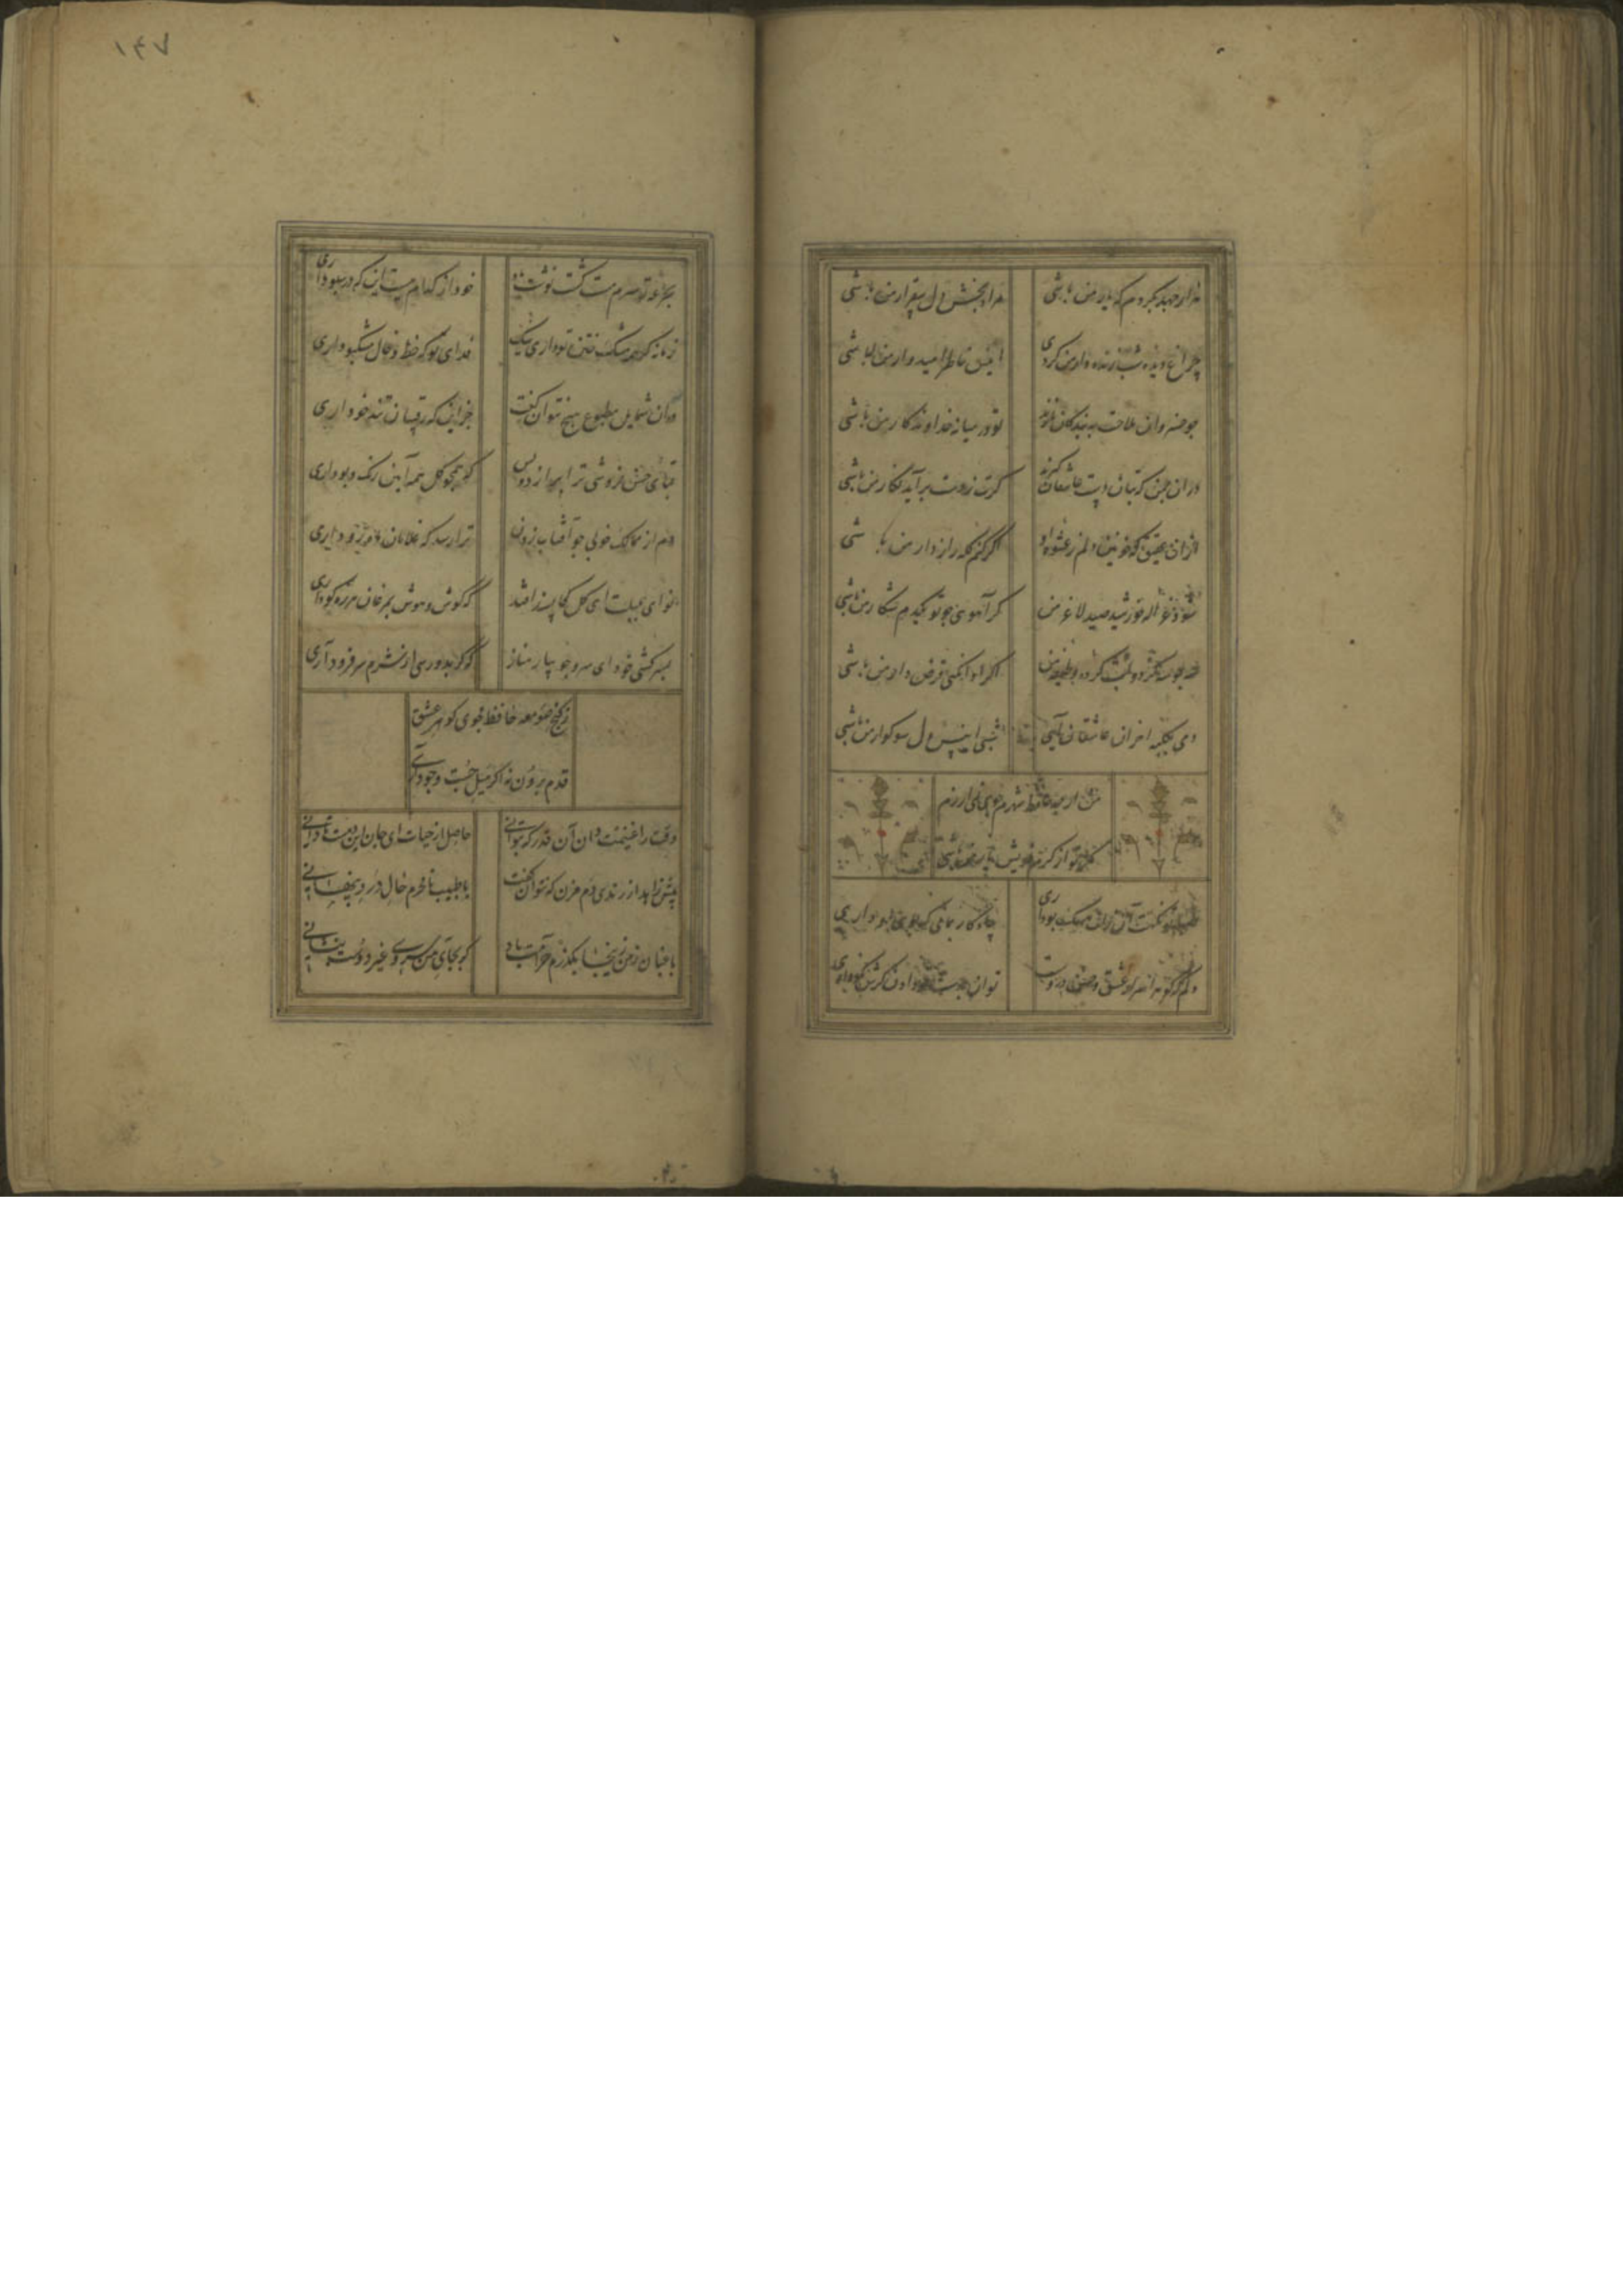 هزار جهد بکردم که یار من باشی
مراد بخش دل بیقرار من باشی
چراغ دیده شب زنده دار من کردی
انیس خاطر امیدوار من باشی
چو خسروان ملاحت به بندگان نازند
تو در میانه خداوندگار من باشی
در ان چمن که بتان دست عاشقان گیرند
گرت ز دست برآید نگار من باشی
از ان عقیق که خونین دلم ز عشوه او
اگر کنم گله راز دار من باشی
شود غزاله خورشید صید لاغر من
گر آهوی چو تو یکدم شکار من باشی
سه بوسه کز دو لبت کرده وظیفه من
اگر ادا نکنی قرض دار من باشی
شبی انیس دل سوکوار من باشی
من ارچه حافظ شهرم جوی نمی ارزم
مگر تو از کرم خویش یار من باشی
دلم که گوهر اسرار عشق و حسن دروست
توان بدست تو دادن گرش نکو داری
۱۴۷
بجرعه تو سرم مست گشت نوشت باد
خود از کدام میست این که در سبو داری
فدای تو که خط و خال مشکبو داری
در ان شمایل مطبوع هیچ نتوان گفت
جز این که رقیبان تند خو داری
قبای حسن فروشی ترا برازد و بس
که همچو گل همه آیین رنگ و بو داری
دم از ممالک خوبی چو آفتاب زدن
ترا رسد که غلامان ماه رو داری
نوای بلبلت ای گل کجا پسند افتد
که گوش و هوش بمرغان هرزه گو داری
بسرکشی خود ای سرو جویبار مناز
که گر بدو رسی از شرم سر فرود آری
ز کنج صومعه حافظ مجوی گوهر عشق
قدم برون نه اگر میل جست و جو داری
وقت را غنیمت دان آن قدر که بتوانی
حاصل از حیات ای جان این دمست تا دانی
پیش زاهد از رندی دم مزن که نتوان گفت
با طبیب نامحرم حال درد پنهانی
باغبان چو من زینجا بگذرم حرامت باد
گر بجای من سروی غیر دوست بنشانی